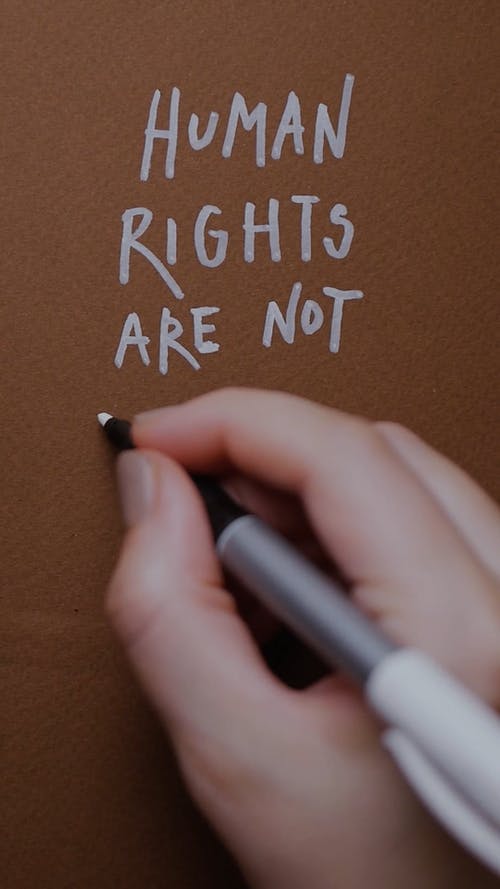 HUMAN
RIGHTS
ARE NOT